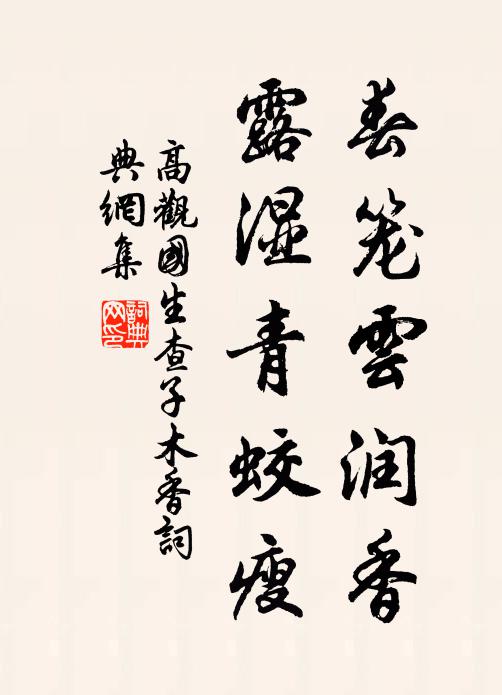 春笼雲润香
露湿青蛟瘦
高觀國生查子木香詞
典網集
詞典網印